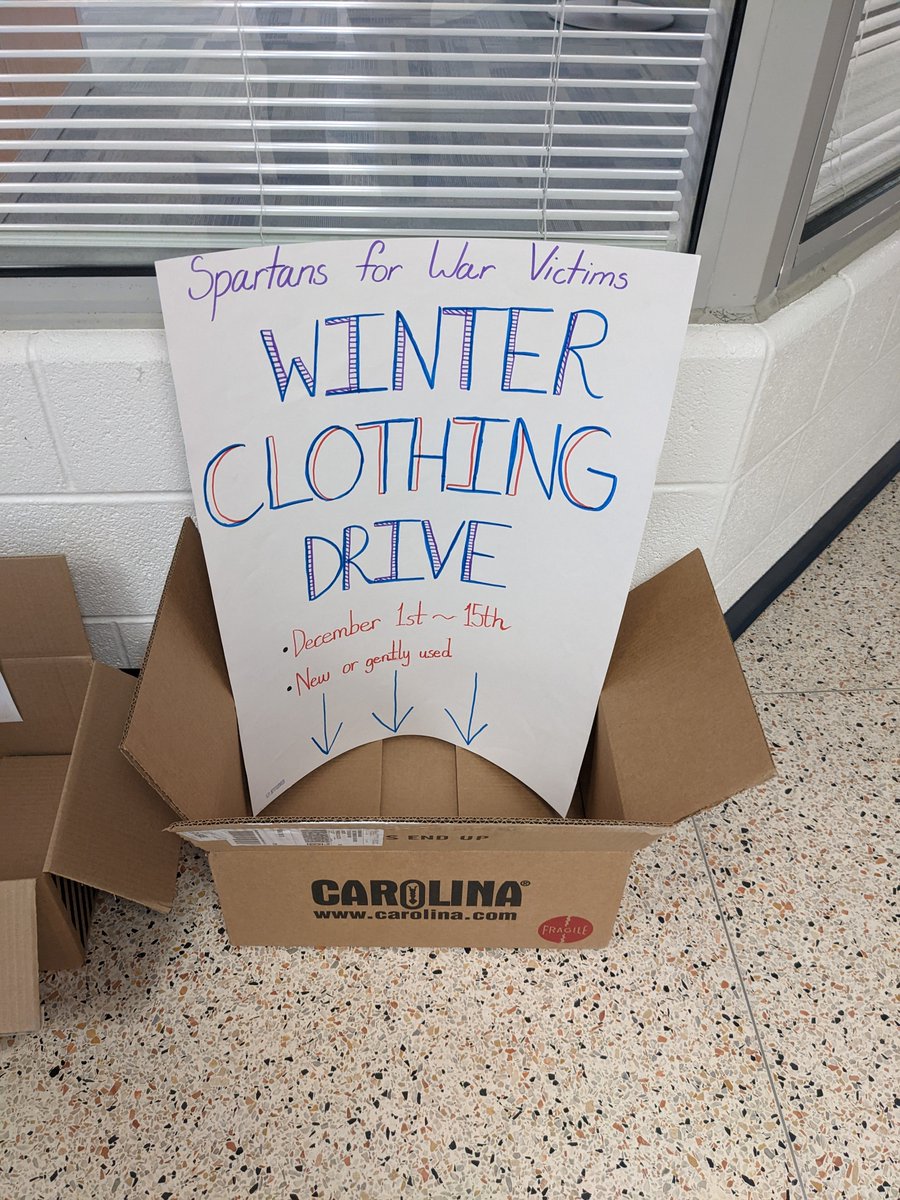 Spartans for War Victims
WINTER
CLOTHING
DRIVE
• December 1st ~ 15th
• New or gently used
S END UP
CAROLINA®
www.carolina.com
FRAGILE